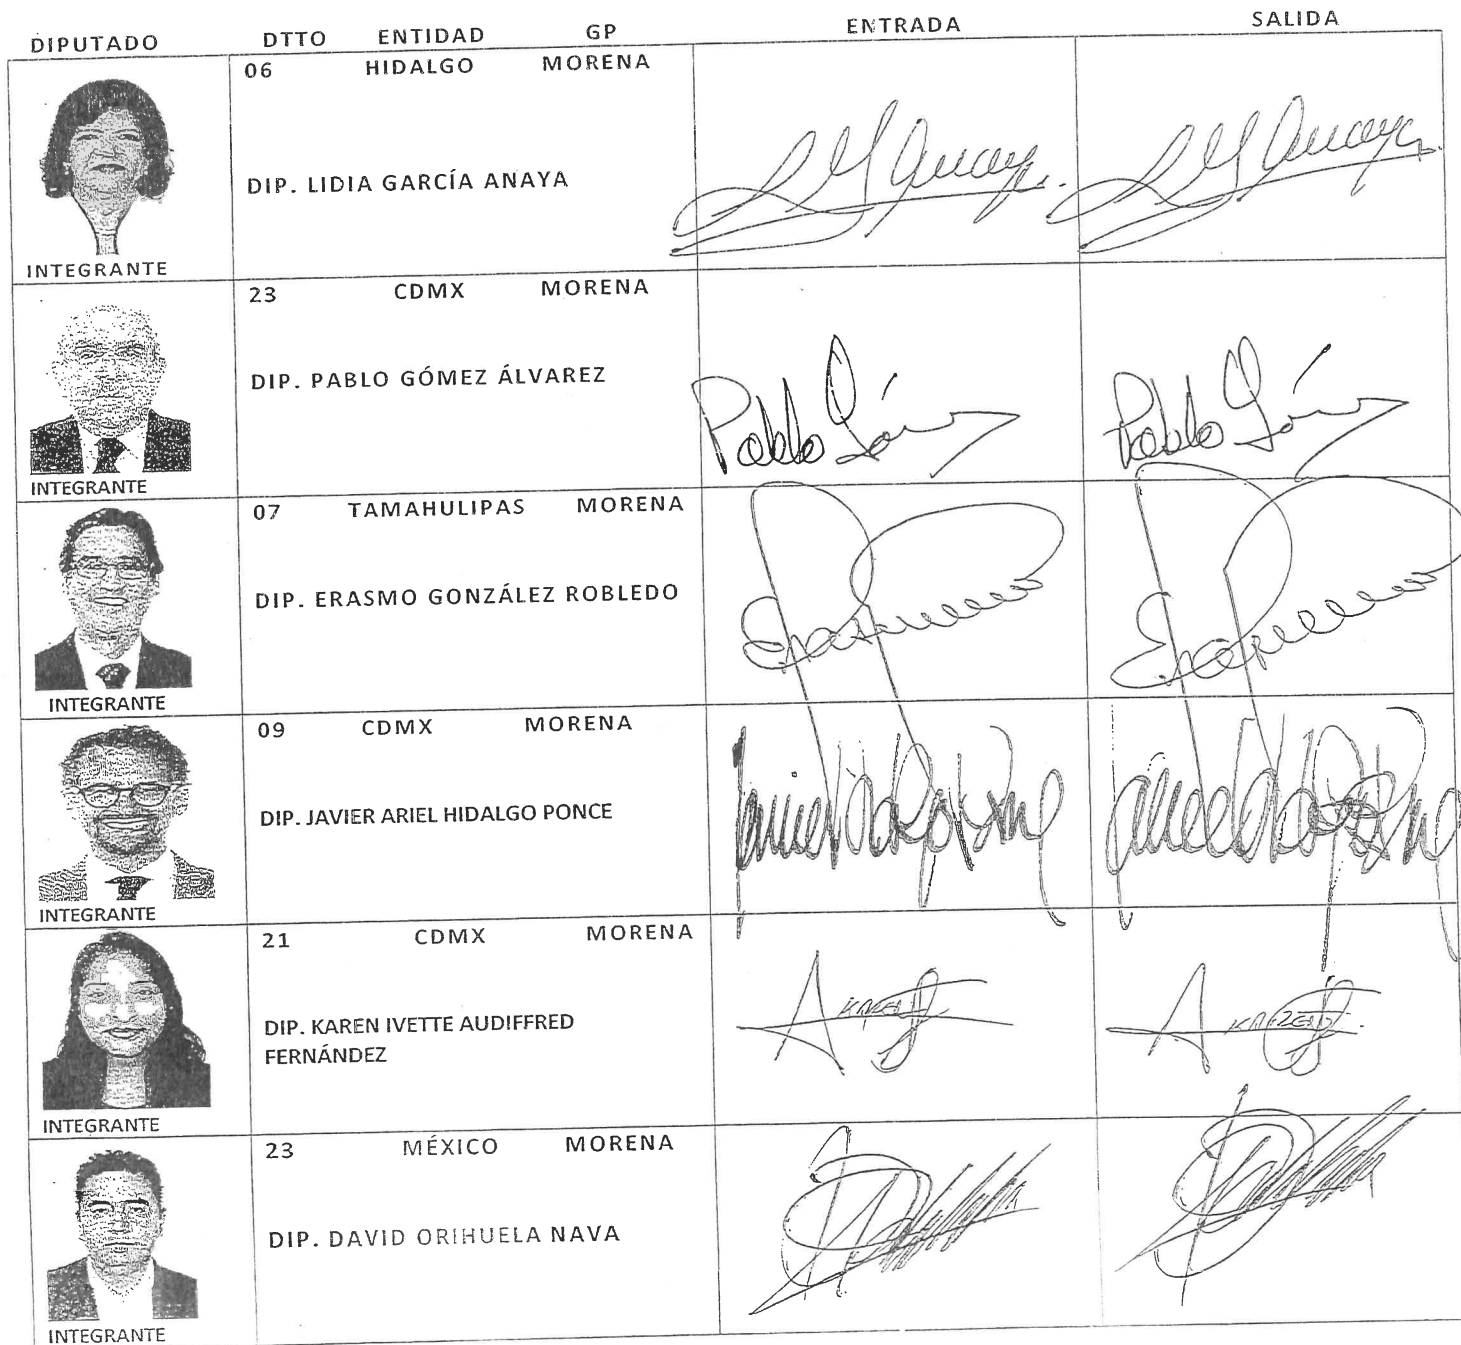 DIPUTADO DTTO ENTIDAD GP ENTRADA SALIDA
06 HIDALGO MORENA
DIP. LIDIA GARCÍA ANAYA
Anaya
Anaya
INTEGRANTE
23 CDMX MORENA
DIP. PABLO GÓMEZ ÁLVAREZ
Pablo Gómez
Pablo Gómez
INTEGRANTE
07 TAMAHULIPAS MORENA
DIP. ERASMO GONZÁLEZ ROBLEDO
INTEGRANTE
09 CDMX MORENA
DIP. JAVIER ARIEL HIDALGO PONCE
INTEGRANTE
21 CDMX MORENA
DIP. KAREN IVETTE AUDIFFRED
FERNÁNDEZ
KAREN
KAREN
INTEGRANTE
23 MÉXICO MORENA
DIP. DAVID ORIHUELA NAVA
INTEGRANTE